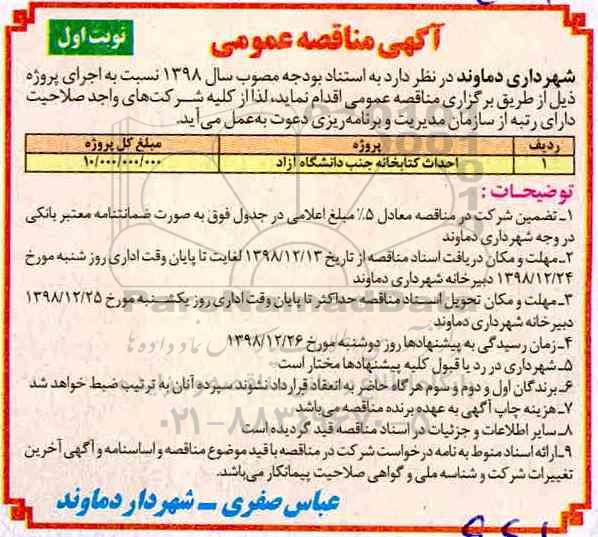 آگهی مناقصه عمومی
نوبت اول
شهرداری دماوند در نظر دارد به استناد بودجه مصوب سال ۱۳۹۸ نسبت به اجرای پروژه
ذیل از طریق برگزاری مناقصه عمومی اقدام نماید، لذا از کلیه شرکت‌های واجد صلاحیت
دارای رتبه از سازمان مدیریت و برنامه‌ریزی دعوت به‌عمل می‌آید.
ردیف پروژه مبلغ کل پروژه
۱ احداث کتابخانه جنب دانشگاه آزاد ۱۰/۰۰۰/۰۰۰/۰۰۰
توضیحات :
۱ـ تضمین شرکت در مناقصه معادل ۵٪ مبلغ اعلامی در جدول فوق به صورت ضمانتنامه معتبر بانکی
در وجه شهرداری دماوند
۲ـ مهلت و مکان دریافت اسناد مناقصه از تاریخ ۱۳۹۸/۱۲/۱۳ لغایت تا پایان وقت اداری روز شنبه مورخ
۱۳۹۸/۱۲/۲۴ دبیرخانه شهرداری دماوند
۳ـ مهلت و مکان تحویل اسناد مناقصه حداکثر تا پایان وقت اداری روز یکشنبه مورخ ۱۳۹۸/۱۲/۲۵
دبیرخانه شهرداری دماوند
۴ـ زمان رسیدگی به پیشنهادها روز دوشنبه مورخ ۱۳۹۸/۱۲/۲۶
۵ـ شهرداری در رد یا قبول کلیه پیشنهادها مختار است
۶ـ برندگان اول و دوم و سوم هرگاه حاضر به انعقاد قرارداد نشوند سپرده آنان به ترتیب ضبط خواهد شد
۷ـ هزینه چاپ آگهی به عهده برنده مناقصه می‌باشد
۸ـ سایر اطلاعات و جزئیات در اسناد مناقصه قید گردیده است
۹ـ ارائه اسناد منوط به نامه درخواست شرکت در مناقصه با قید موضوع مناقصه و اساسنامه و آگهی آخرین
تغییرات شرکت و شناسه ملی و گواهی صلاحیت پیمانکار می‌باشد.
عباس صفری ـ شهردار دماوند